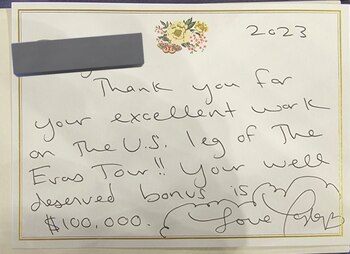 2023
Thank you for
your excellent work
on the U.S. leg of The
Eras Tour!! Your well
deserved bonus is
$100,000. Love